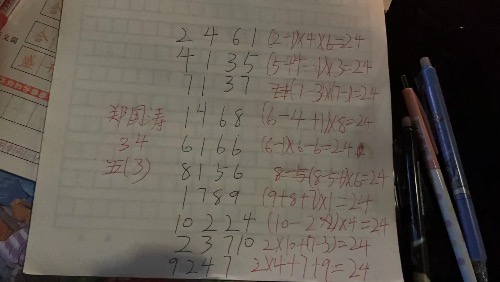 2 4 6 1 (2-1)×4×6=24
4 1 3 5 (5+4-1)×3=24
7 1 3 7 (7-3)×(7-1)=24
1 4 6 8 (6-4+1)×8=24
6 1 6 6 (6-1)×6-6=24
8 1 5 6 (8-5+1)×6=24
1 7 8 9 (9+8+7)×1=24
10 2 2 4 (10-2-2)×4=24
2 3 7 10 2×10+(7-3)=24
9 2 4 7 2×4+7+9=24
郑国涛
34
五(3)